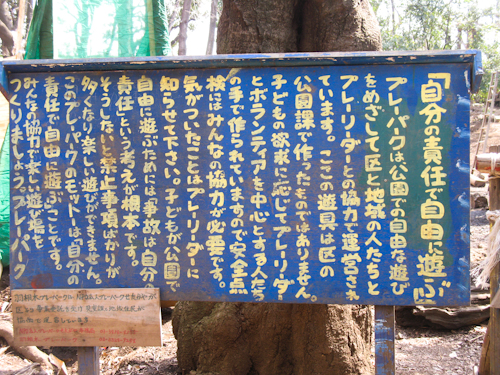 「自分の責任で自由に遊ぶ」
プレーパークは、公園での自由な遊び
をめざして区と地域の人たちと
プレーリーダーとの協力で運営され
ています。ここの遊具は区の
公園課で作ったものではありません。
子どもの欲求に応じてプレーリーダー
とボランティアを中心とする人たち
の手で作られていますので安全点
検はみんなの協力が必要です。
気がついたことはプレーリーダーに
知らせて下さい。子どもが公園で
自由に遊ぶためには「事故は自分の
責任」という考えが根本です。
そうしないと禁止事項ばかりが
多くなり楽しい遊びができません。
このプレーパークのモットーは「自分の
責任で自由に遊ぶ」ことです。
みんなの協力で楽しい遊び場を
つくりましょう。プレーパーク